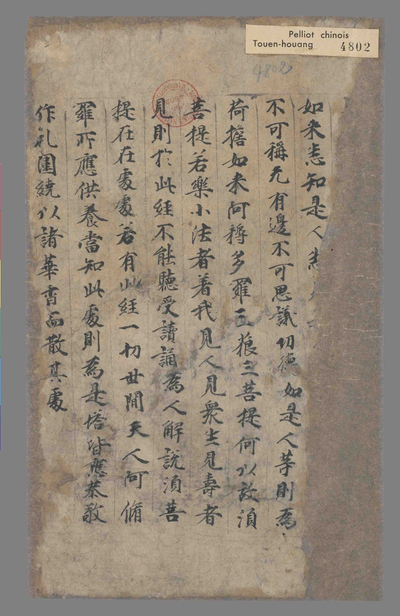 Pelliot chinois
Touen-houang 4802
4802
如来悉知是人悉
不可稱无有邊不可思議功德如是人等則為
荷擔如来阿耨多羅三藐三菩提何以故湏
菩提若樂小法者著我見人見衆生見壽者
見則於此經不能聽受讀誦為人解說湏菩
提在在處處若有此經一切世間天人阿脩
羅所應供養當知此處則為是塔皆應恭敬
作礼圍繞以諸華香而散其處